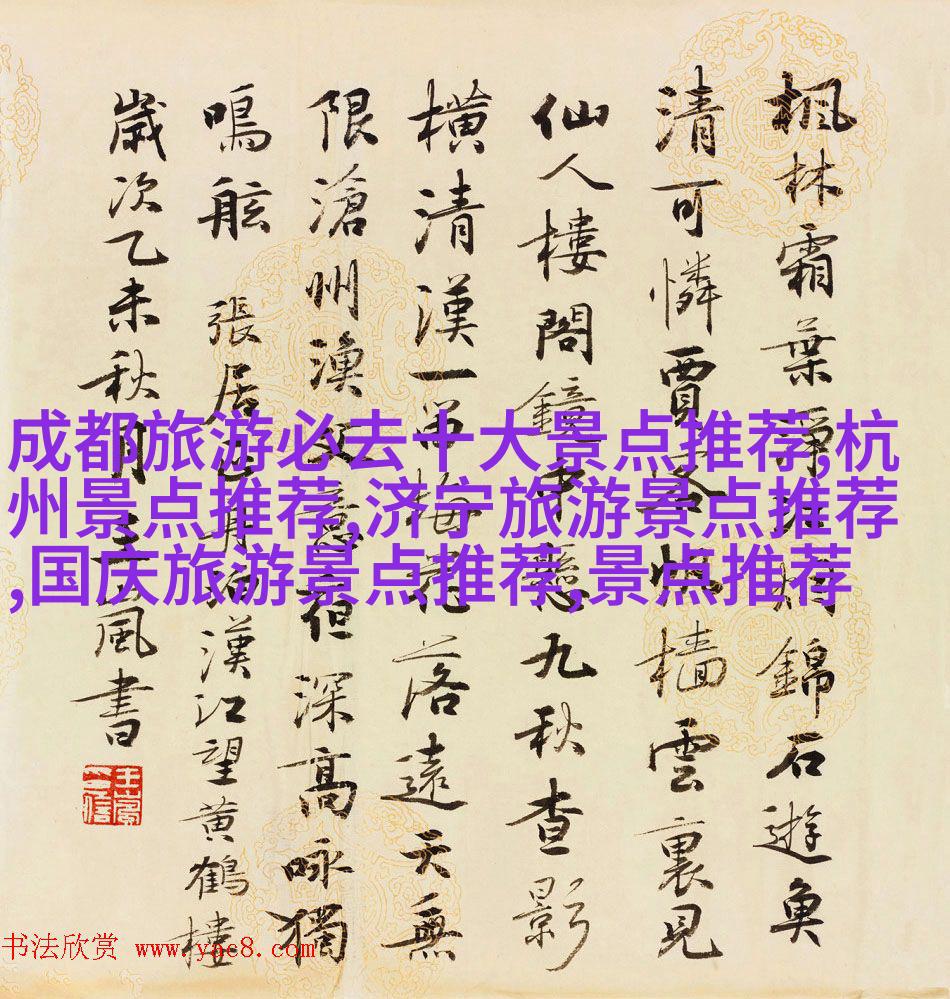 楓林霜葉淨江煙錦石遊魚
清可憐賈客帆檣雲裏見
仙人樓閣鏡中懸九秋查影
橫清漢一笛梅花落遠天無
限滄州漁父意夜深高咏獨
鳴舷 張居正舟泊漢江望黃鶴樓
歲次乙未秋月風書
成都旅游必去十大景点推荐,杭
州景点推荐,济宁旅游景点推荐
,国庆旅游景点推荐,景点推荐
书法欣赏 www.yac8.com